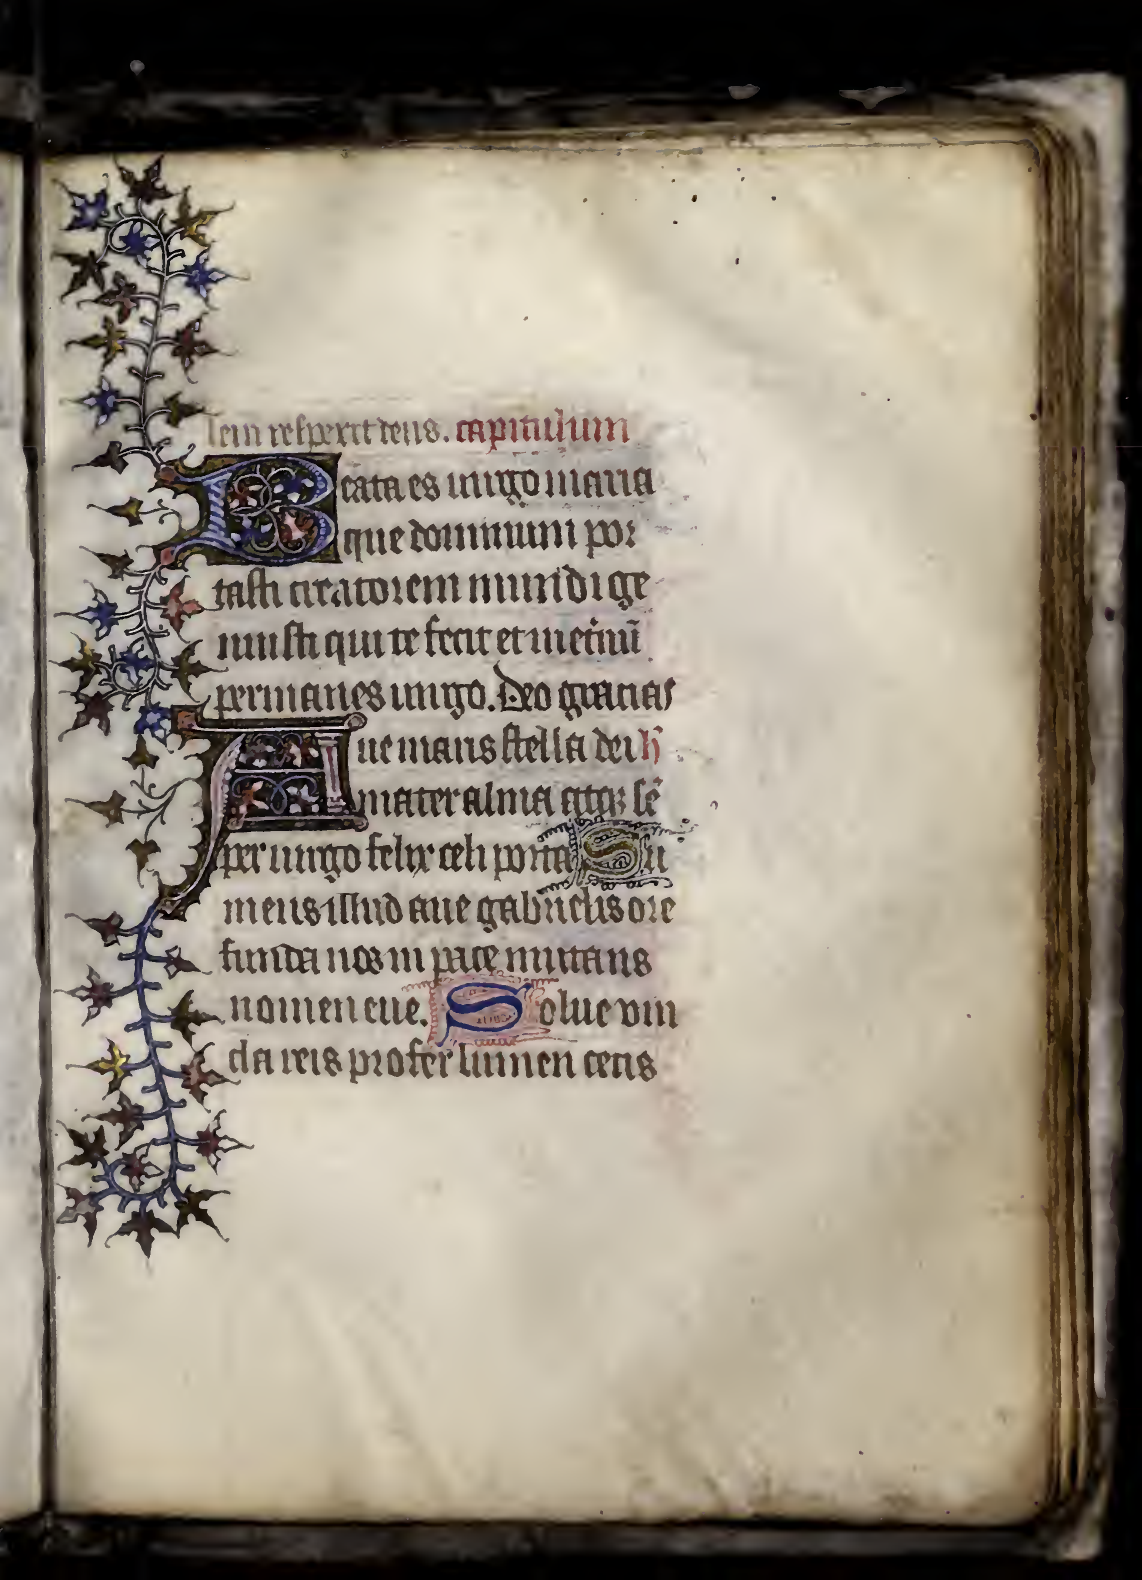 tem respexit deus. capitulum
Beata es uirgo maria
que dominum por
tasti creatorem mundi ge
nuisti qui te fecit et inet̾nū
permanes uirgo. Deo gracias
Aue maris stella dei h̄
mater alma atqꝫ sē
per uirgo felix celi porta Su
mens illud aue gabrielis ore
funda nos in pace mutans
nomen eue. Solue vin
cla reis profer lumen cecis